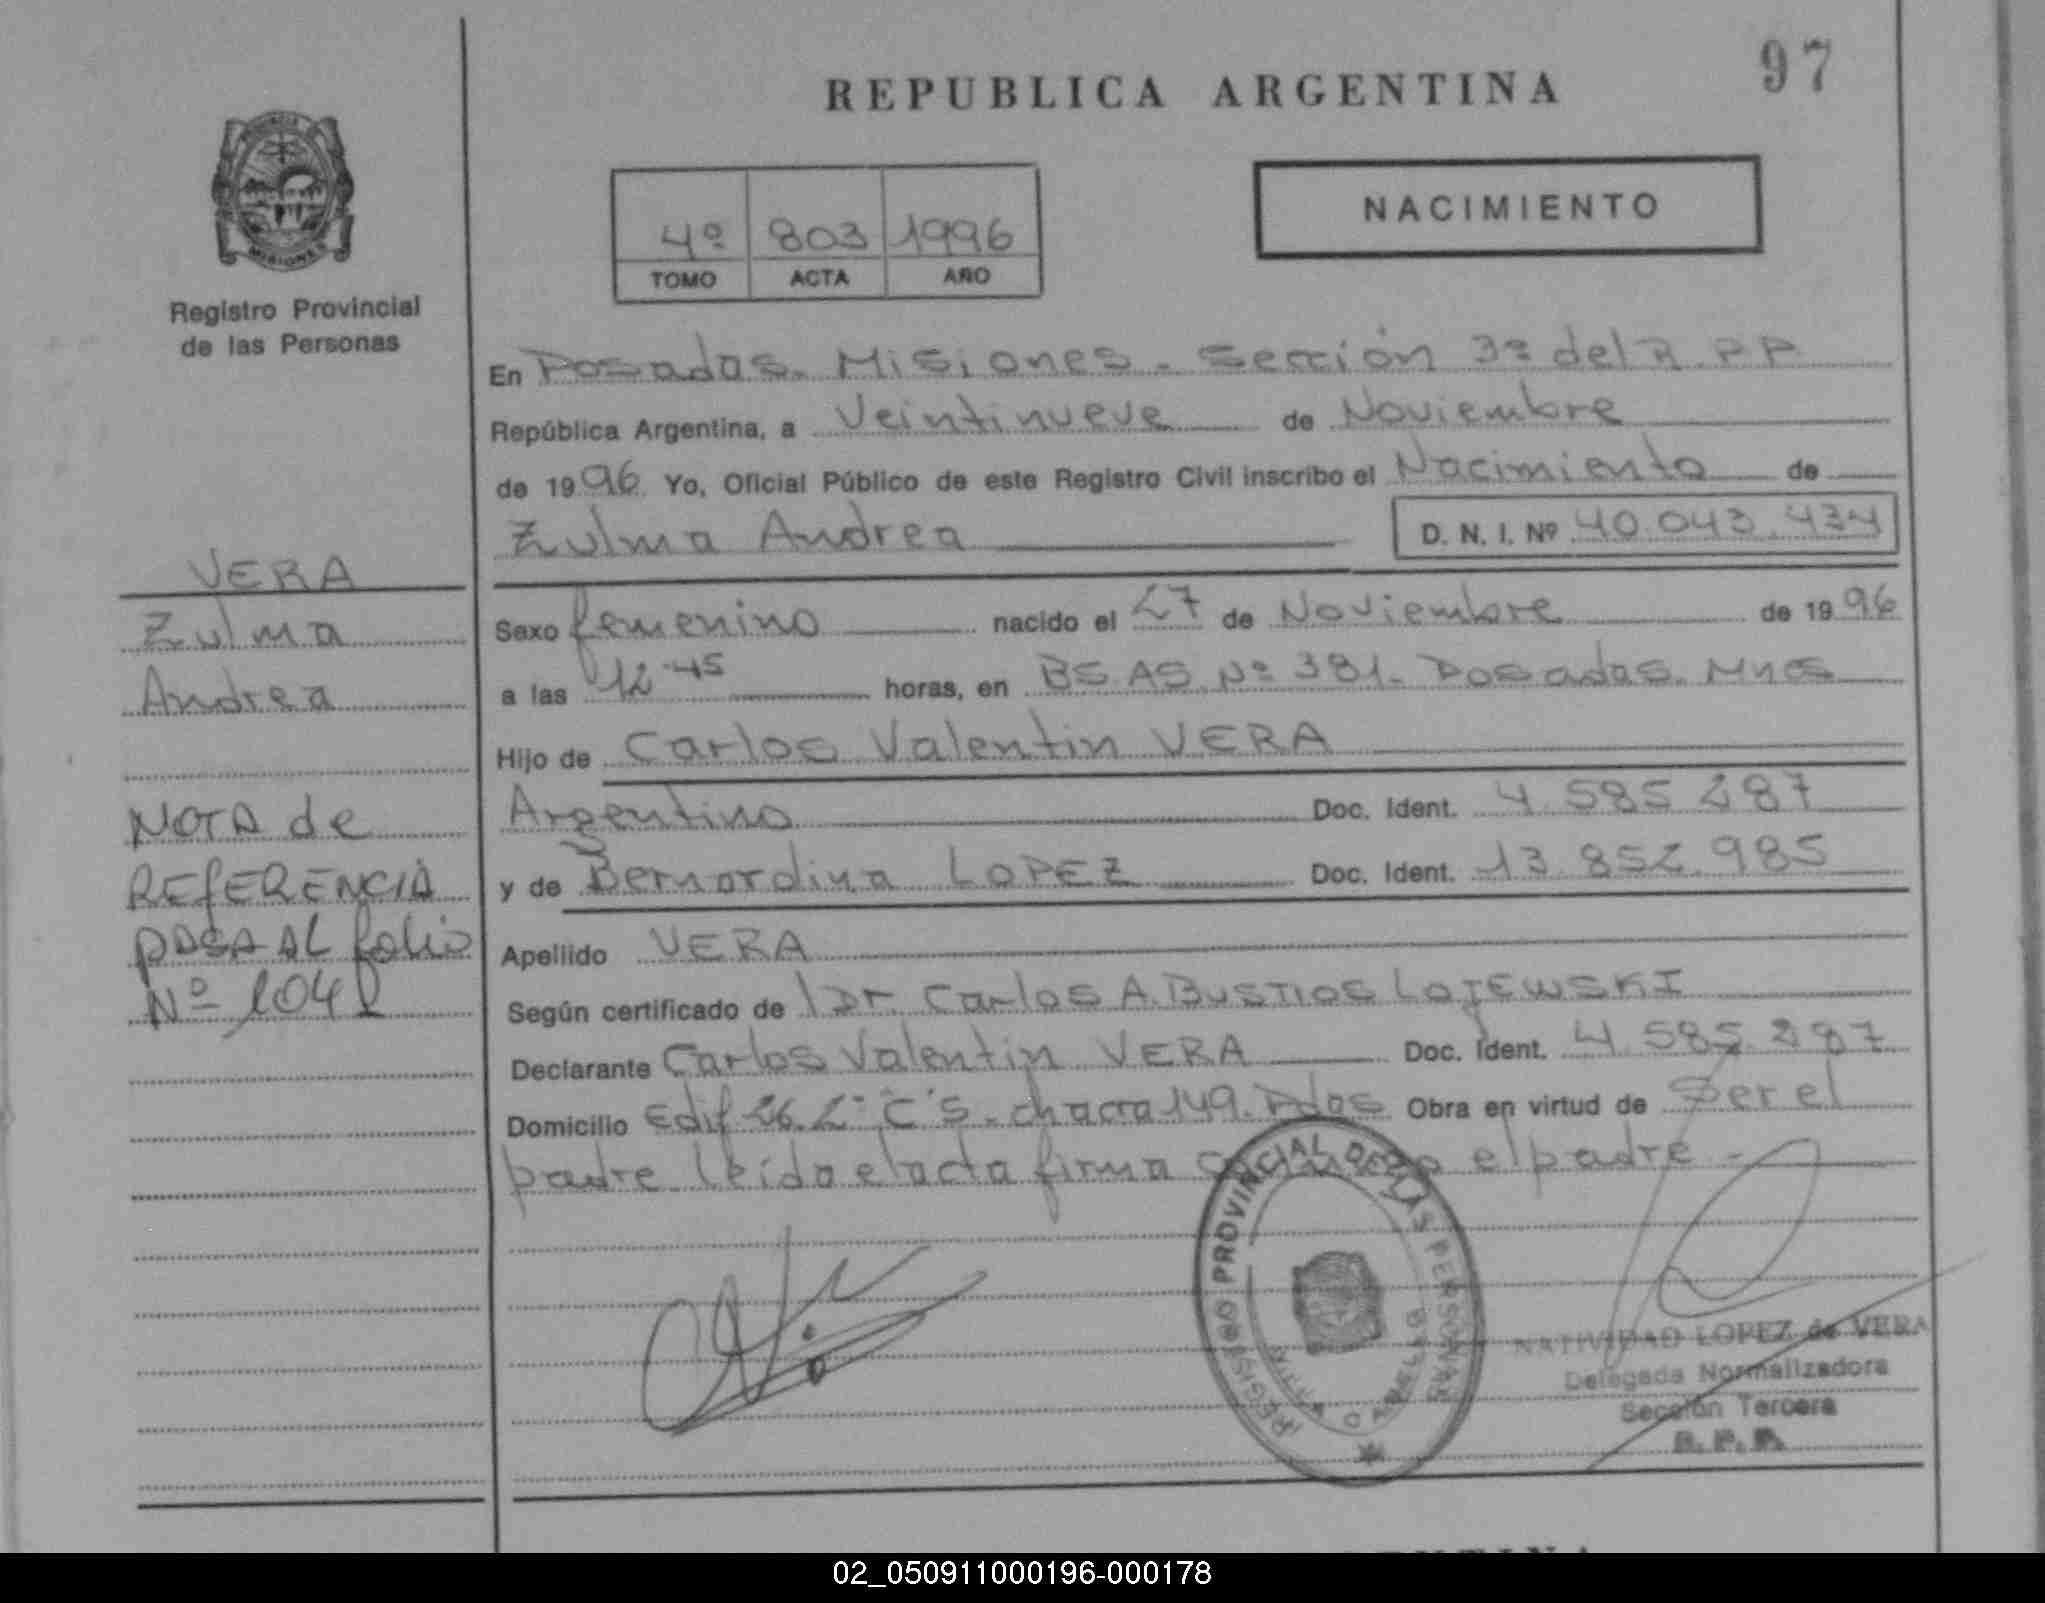 97
REPUBLICA ARGENTINA
PROVINCIA DE
MISIONES
Registro Provincial
de las Personas
4º 803 1996
TOMO ACTA AÑO
NACIMIENTO
En Posadas. Misiones. Sección 3ª del R.P.P
República Argentina, a Veintinueve de Noviembre
de 1996 Yo, Oficial Público de este Registro Civil inscribo el Nacimiento de
Zulma Andrea D. N. I. Nº 40.043.434
VERA
Zulma
Andrea
NOTA de
REFERENCIA
PASA AL folio
Nº 104
Sexo femenino nacido el 27 de Noviembre de 1996
a las 12.45 horas, en BS.AS. Nº 381. Posadas. Mnes
Hijo de Carlos Valentin VERA
Argentino Doc. Ident. 4.585.287
y de Bernardina LOPEZ Doc. Ident. 13.852.985
Apellido VERA
Según certificado de Dr. Carlos A. BUSTIOS LOJEWSKI
Declarante Carlos Valentin VERA Doc. Ident. 4.585.287
Domicilio Edif 26. 2º "C" S. chacra 149. Pdas Obra en virtud de Ser el
padre leida el acta firma el padre.-
REGISTRO PROVINCIAL DE LAS PERSONAS
NATIVIDAD LOPEZ de VERA
Delegada Normalizadora
Sección Tercera
R. P. P.
02_050911000196-000178